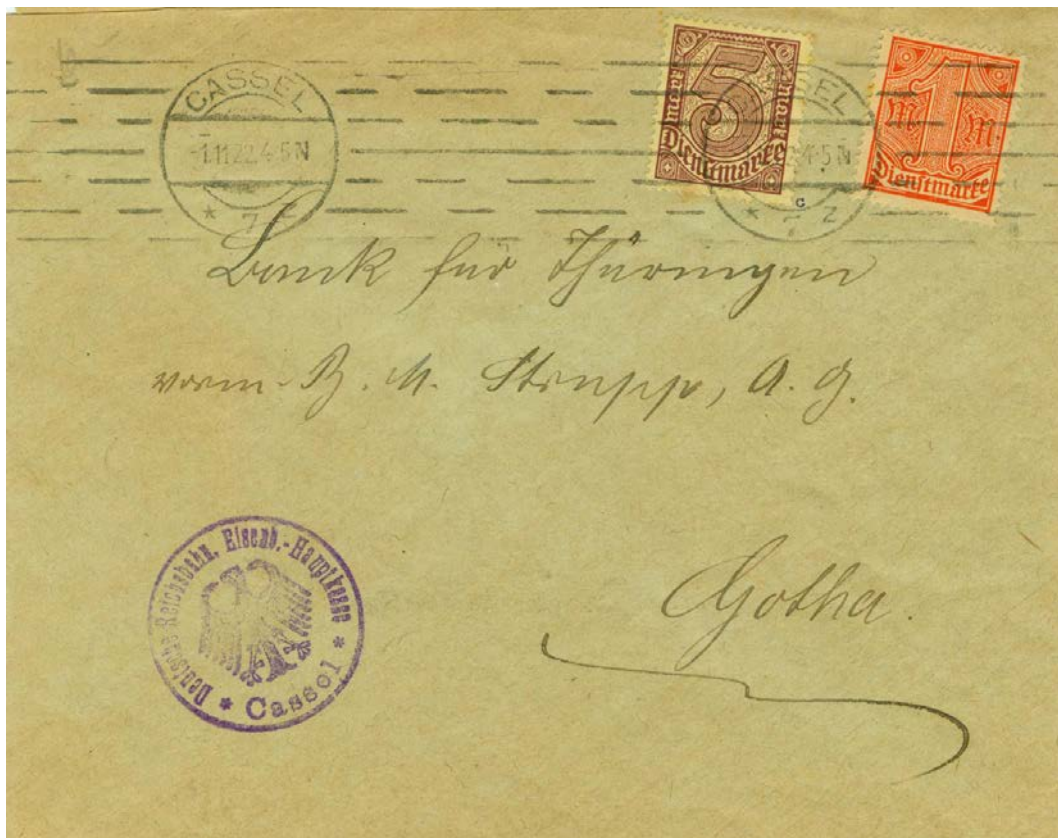 CASSEL
-1.11.22.4-5N
* 7 z
5
Mark
Mark
Dienstmarke
SSEL
2.4-5N
* 7 z
c
1
M. M.
Dienstmarke
Bank für Thüringen
vorm. B. M. Strupp, A. G.
Gotha.
Deutsche Reichsbahn, Eisenb.-Hauptkasse
* Cassel *